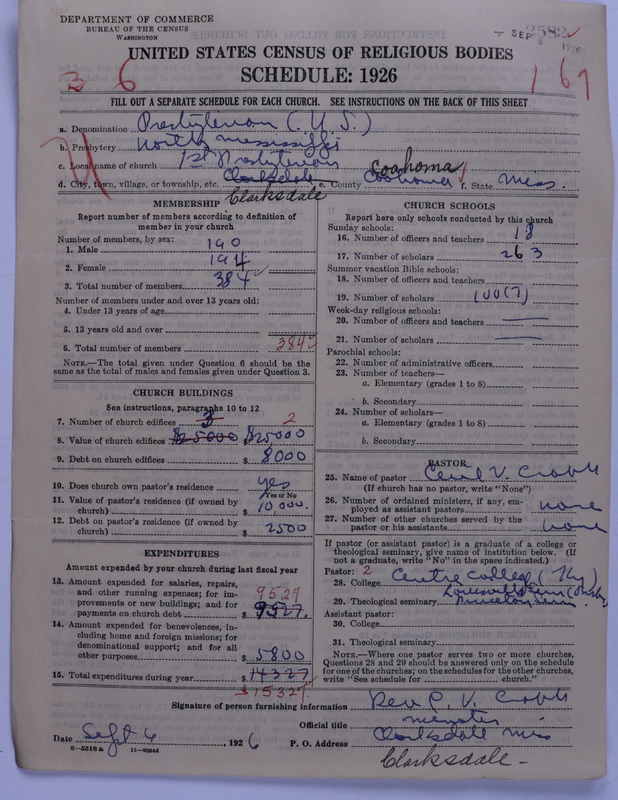 DEPARTMENT OF COMMERCE
BUREAU OF THE CENSUS
WASHINGTON
2582
SEP 8 1926
UNITED STATES CENSUS OF RELIGIOUS BODIES
SCHEDULE: 1926
3 6
167
FILL OUT A SEPARATE SCHEDULE FOR EACH CHURCH. SEE INSTRUCTIONS ON THE BACK OF THIS SHEET
a. Denomination Presbyterian (U.S.)
b. Presbytery North Mississippi
c. Local name of church 1st Presbyterian
Coahoma
d. City, town, village, or township, etc. Clarksdale e. County Coahoma f. State Miss.
Clarksdale
MEMBERSHIP
Report number of members according to definition of member in your church
Number of members, by sex:
1. Male 190
2. Female 194
3. Total number of members 384
Number of members under and over 13 years old:
4. Under 13 years of age
5. 13 years old and over
6. Total number of members 384
NOTE.—The total given under Question 6 should be the same as the total of males and females given under Question 3.
CHURCH BUILDINGS
See instructions, paragraphs 10 to 12
7. Number of church edifices 3 2
8. Value of church edifices $25000 $25,000
9. Debt on church edifices $ 8000
10. Does church own pastor's residence yes
Yes or No
11. Value of pastor's residence (if owned by church) $ 10 000.
12. Debt on pastor's residence (if owned by church) $ 2500
EXPENDITURES
Amount expended by your church during last fiscal year
13. Amount expended for salaries, repairs, and other running expenses; for improvements or new buildings; and for payments on church debt $ 9527
9527.
14. Amount expended for benevolences, including home and foreign missions; for denominational support; and for all other purposes $ 5800
15. Total expenditures during year $ 14327
$15327
CHURCH SCHOOLS
Report here only schools conducted by this church
Sunday schools:
16. Number of officers and teachers 18
17. Number of scholars 263
Summer vacation Bible schools:
18. Number of officers and teachers
19. Number of scholars 100(?)
Week-day religious schools:
20. Number of officers and teachers
21. Number of scholars
Parochial schools:
22. Number of administrative officers
23. Number of teachers—
a. Elementary (grades 1 to 8)
b. Secondary
24. Number of scholars—
a. Elementary (grades 1 to 8)
b. Secondary
PASTOR
25. Name of pastor V.
(If church has no pastor, write "None")
26. Number of ordained ministers, if any, employed as assistant pastors none
27. Number of other churches served by the pastor or his assistants none
If pastor (or assistant pastor) is a graduate of a college or theological seminary, give name of institution below. (If not a graduate, write "No" in the space indicated.)
Pastor: 2
28. College Centre College (Ky)
Louisville Sem
29. Theological seminary Princeton Sem.
Assistant pastor:
30. College
31. Theological seminary
NOTE.—Where one pastor serves two or more churches, Questions 28 and 29 should be answered only on the schedule for one of the churches; on the schedules for the other churches, write "See schedule for church."
Signature of person furnishing information Rev. C. V.
Official title minister
Date Sept 6, 1926 P. O. Address Clarksdale Miss
8—5518a
Clarksdale -